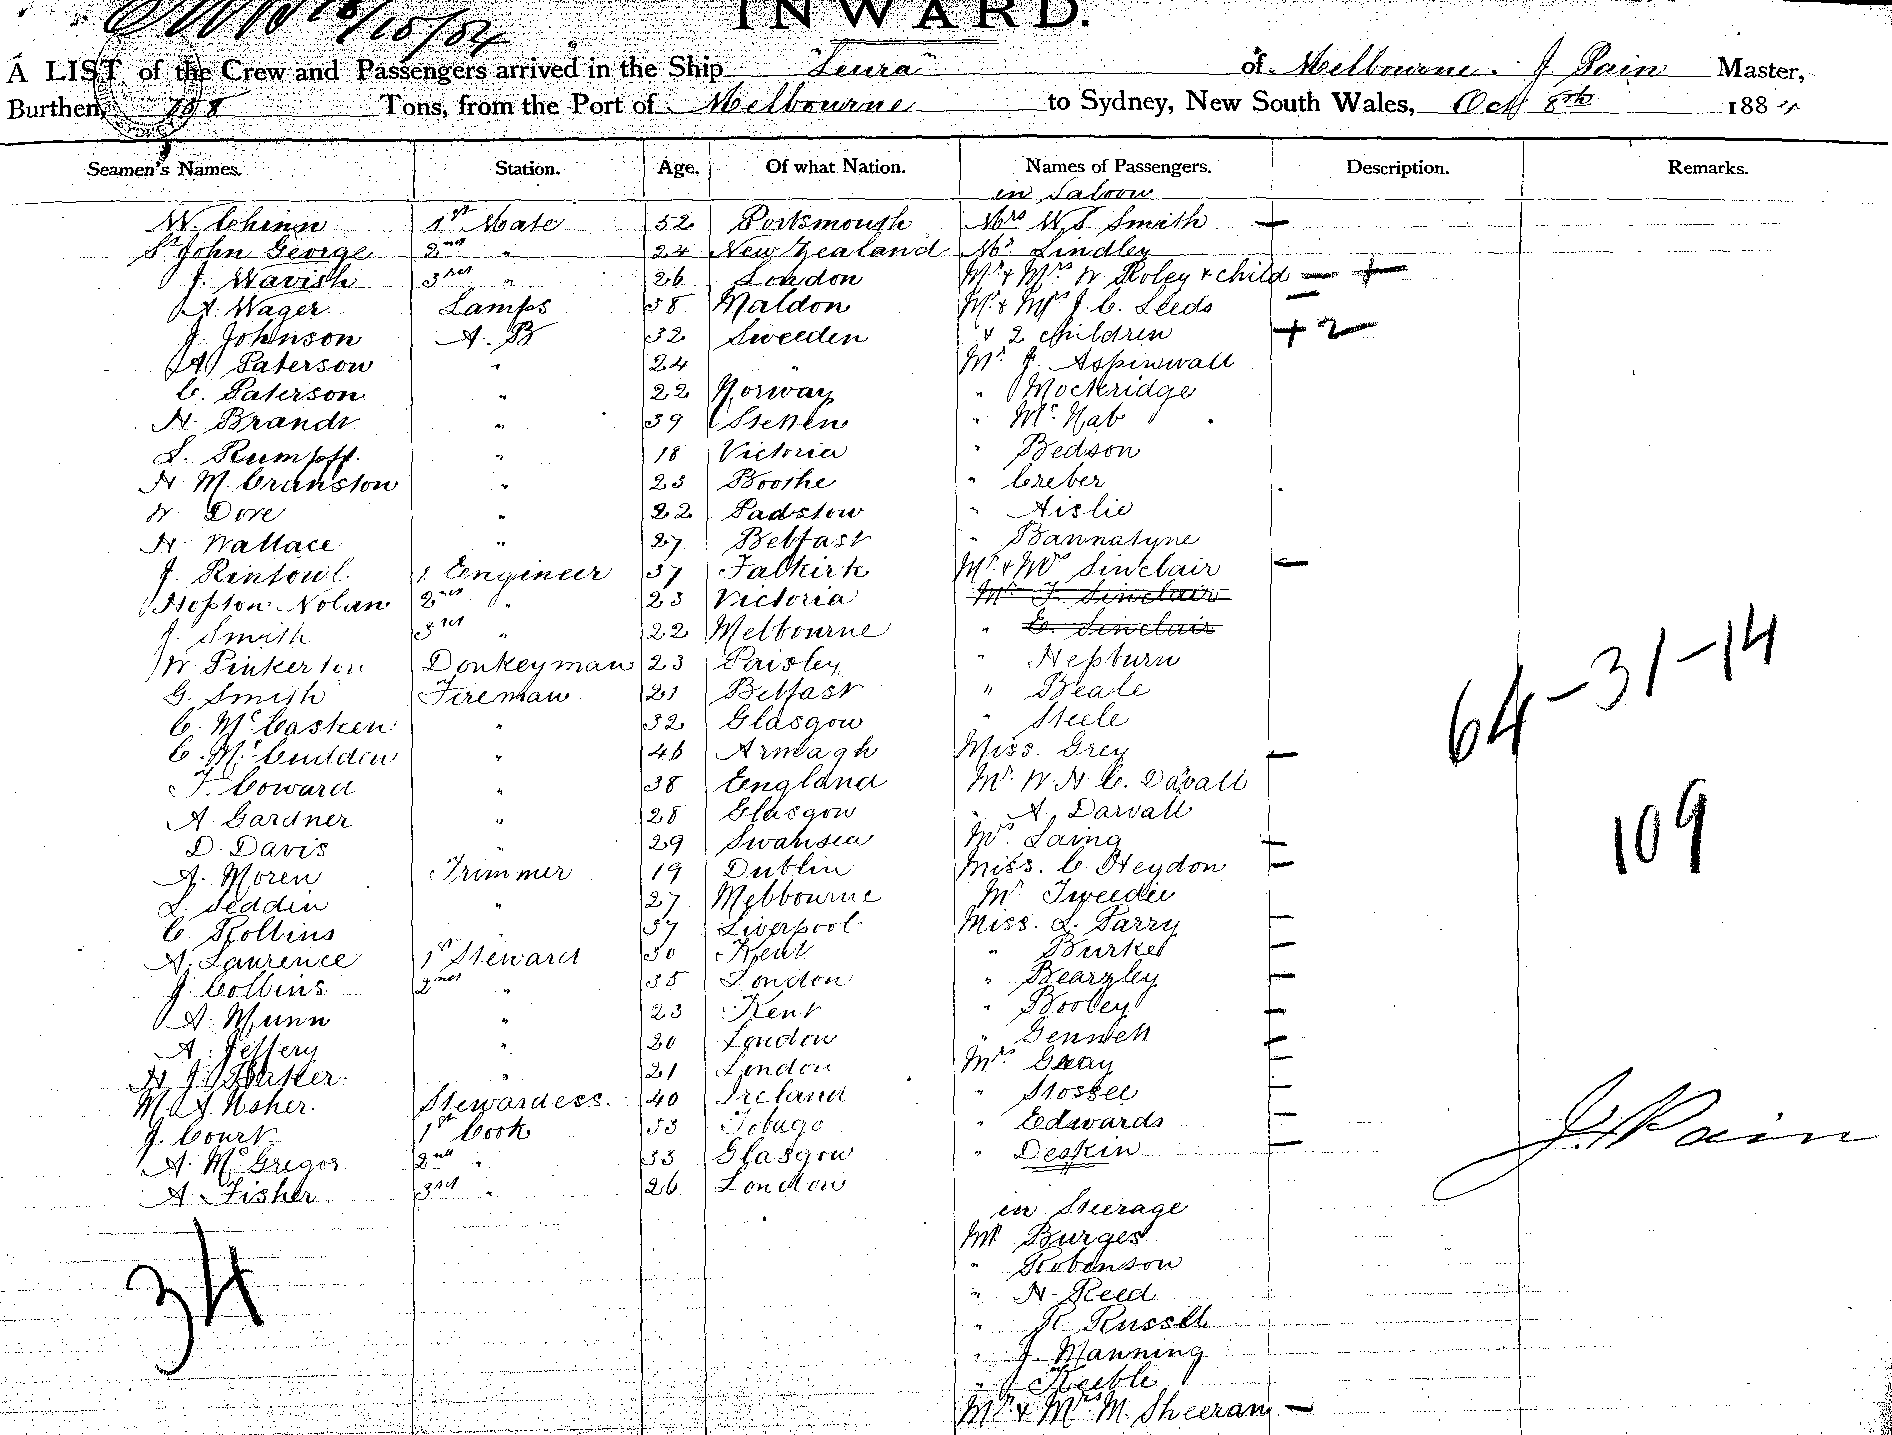 INWARD.
A LIST of the Crew and Passengers arrived in the Ship "Leura" of Melbourne. J Pain Master,
Burthen, Tons, from the Port of Melbourne to Sydney, New South Wales, Oct 8th 1884
Seamen's Names. Station. Age. Of what Nation. Names of Passengers. Description. Remarks.
in Saloon
W. Chinn 1st Mate 52 Portsmouth Mrs W S Smith —
St John George 2nd " 24 New Zealand Mr. Lindley
J. Wavish 3rd " 26 London Mr & Mrs W Roley & child — +
A. Wager Lamps 38 Maldon Mr & Mrs J. C. Leeds —
J. Johnson A. B 32 Sweeden & 2 children + 2
A. Paterson " 24 " Mr J. Aspinwall
C. Paterson " 22 Norway " Mockridge
H. Brandt " 39 Stettin " Mc Nab
L. Rumpff. " 18 Victoria " Bedson
H. M. Cranston " 23 Boothe " Creber
W. Dove " 22 Padstow " Aislie
H. Wallace " 27 Belfast " Bannatyne
J. Rintoul. 1 Engineer 37 Falkirk Mr & Mrs Sinclair —
Hopton Nolan 2nd " 23 Victoria Mr J. Sinclair
J. Smith 3rd " 22 Melbourne " C. Sinclair
W Pinkerton Donkeyman 23 Paisley " Hepburn
G. Smith Fireman 21 Belfast " Beale
C. Mc Casken " 32 Glasgow " Steele
C. Mc Cudden " 46 Armagh Miss. Grey —
T. Coward " 38 England Mr. W. H. C. Davall
A. Gardner " 28 Glasgow " A. Darvall
D. Davis " 29 Swansea Mrs Laing —
A. Moren Trimmer 19 Dublin Miss. C. Heydon —
L. Seddin " 27 Melbourne Mr Tweedie
C. Rollins 37 Liverpool Miss. L. Parry —
A. Laurence 1st Steward 30 Kent " Burke —
J. Collins 2nd " 35 London " Bearzley —
A. Munn " 23 Kent " Booley —
A. Jeffery " 20 London " Gennett —
H. J. Baker. " 21 London Mrs Gray —
M. A. Usher. Stewardess. 40 Ireland " Stossel —
J. Court 1st Cook 53 Tobago " Edwards —
A. Mc Gregor 2nd " 33 Glasgow " Deskin —
A. Fisher 3rd " 26 London
in Steerage
Mr Burges
" Robinson
" H. Reed
" R Russell
" J. Manning
" J Keeble
Mr & Mrs M. Sheeran —
34
64-31-14
109
J. Pain